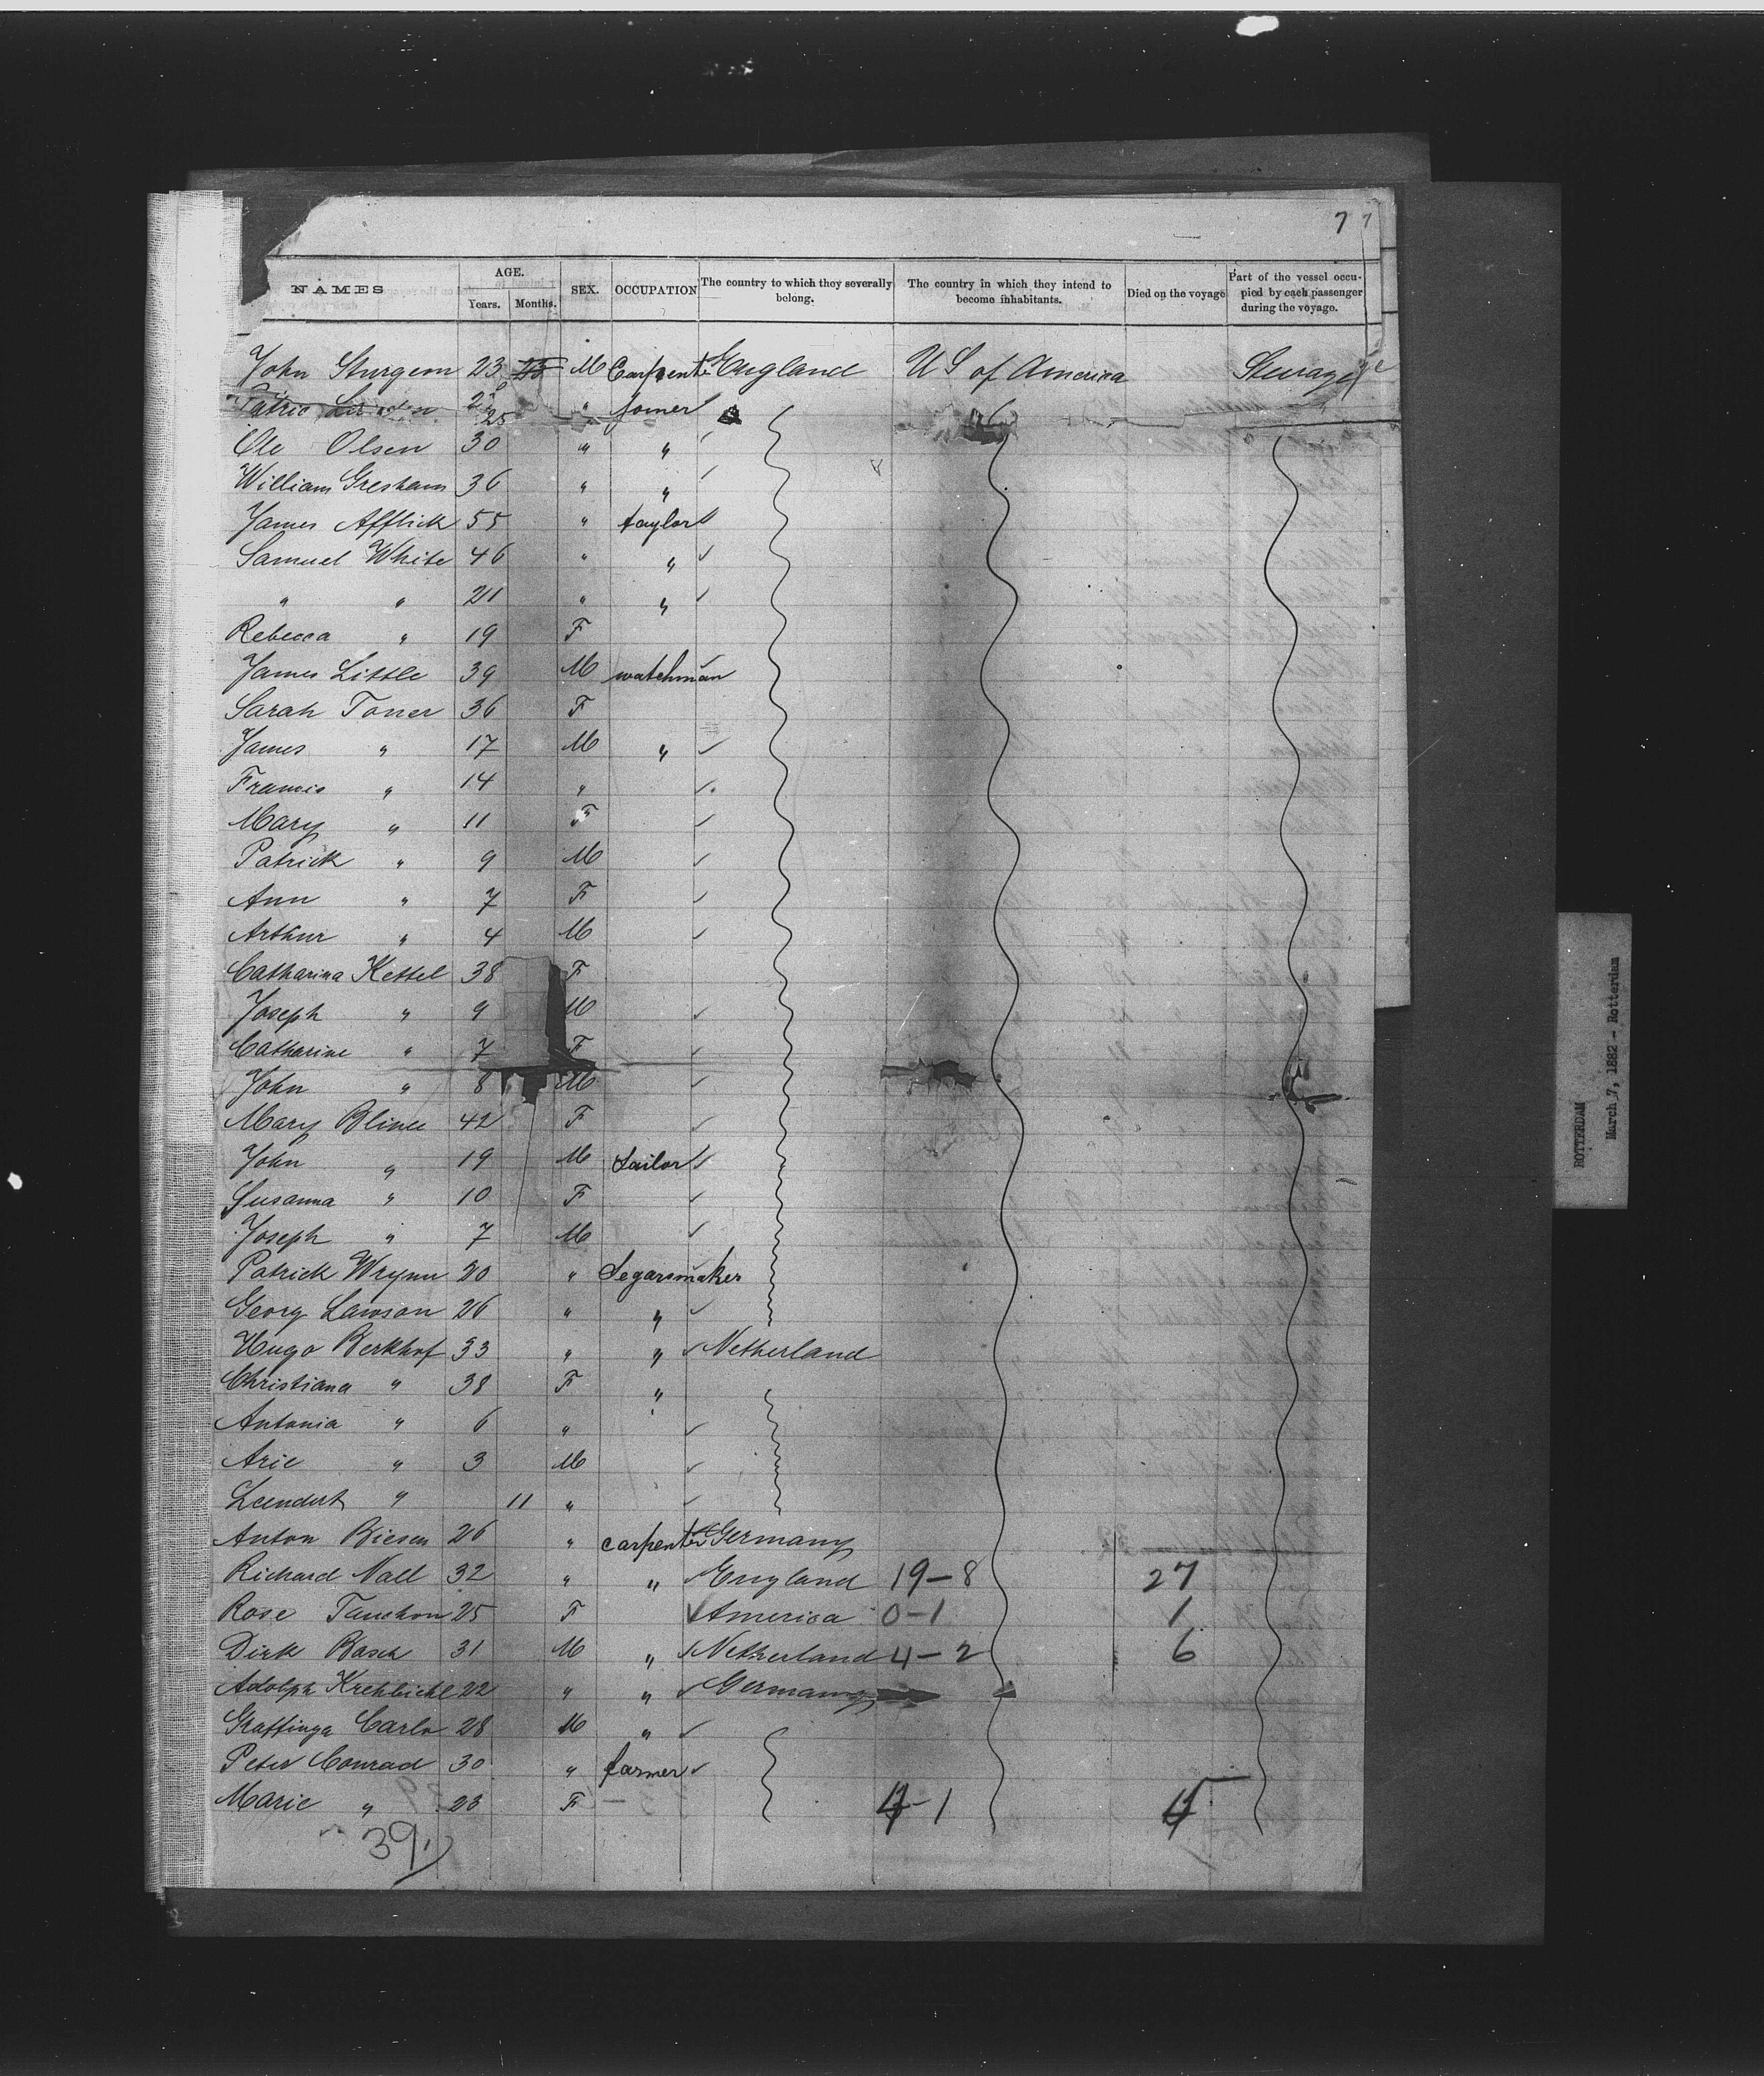 7 7
NAMES AGE. Years. Months. SEX. OCCUPATION The country to which they severally belong. The country in which they intend to become inhabitants. Died on the voyage Part of the vessel occupied by each passenger during the voyage.
John Sturgeon 23 M Carpenter England U S of America Steerage
Patric 25 " Joiner
Ole Olsen 30 " "
William Gresham 36 " "
James Afflick 55 " taylor
Samuel White 46 " "
" " 21 " "
Rebecca " 19 F
James Little 39 M watchman
Sarah Toner 36 F
James " 17 M "
Francis " 14 "
Mary " 11 F
Patrick " 9 M
Ann " 7 F
Arthur " 4 M
Catharina Kettel 38 F
Joseph " 9 M
Catharine " 7 F
John " 8 M
Mary Blinee 42 F
John " 19 M Sailor
Susanna " 10 F
Joseph " 7 M
Patrick Wrynn 20 " Segarsmaker
Georg Lawson 26 " "
Hugo Berkhof 33 " " Netherland
Christiana " 38 F "
Antonia " 6 "
Arie " 3 M
Leendert " 11 "
Anton Biesen 26 " carpenter Germany
Richard Nall 32 " " England 19-8 27
Rose Tanchon 25 F America 0-1 1
Dirk Basch 31 M " Netherland 4-2 6
Adolph Krehbiehl 22 " " Germany
Graffinga Carlo 28 M "
Peter Conrad 30 " farmer
Marie " 23 F 4-1
39
ROTTERDAM
March 7, 1882 - Rotterdam